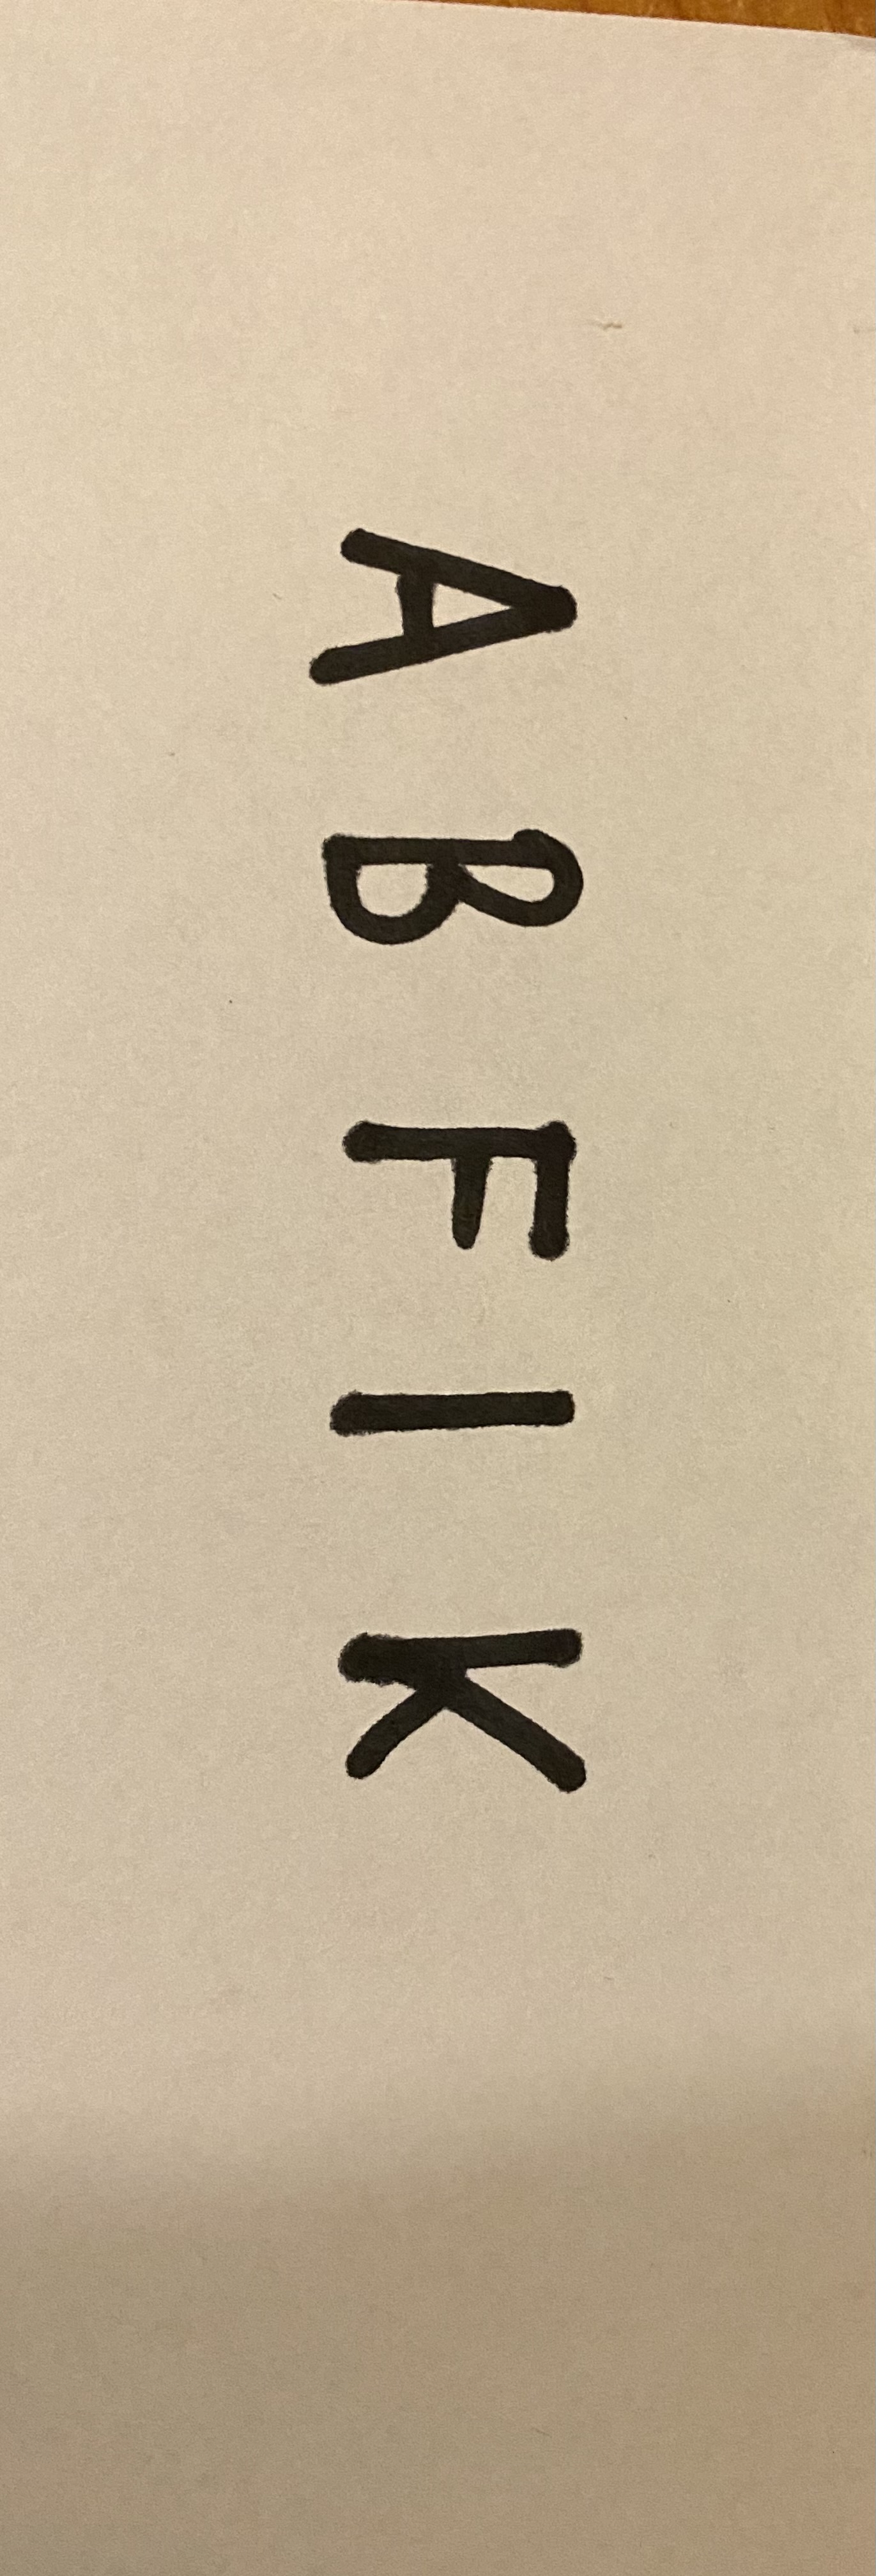 A B F I K